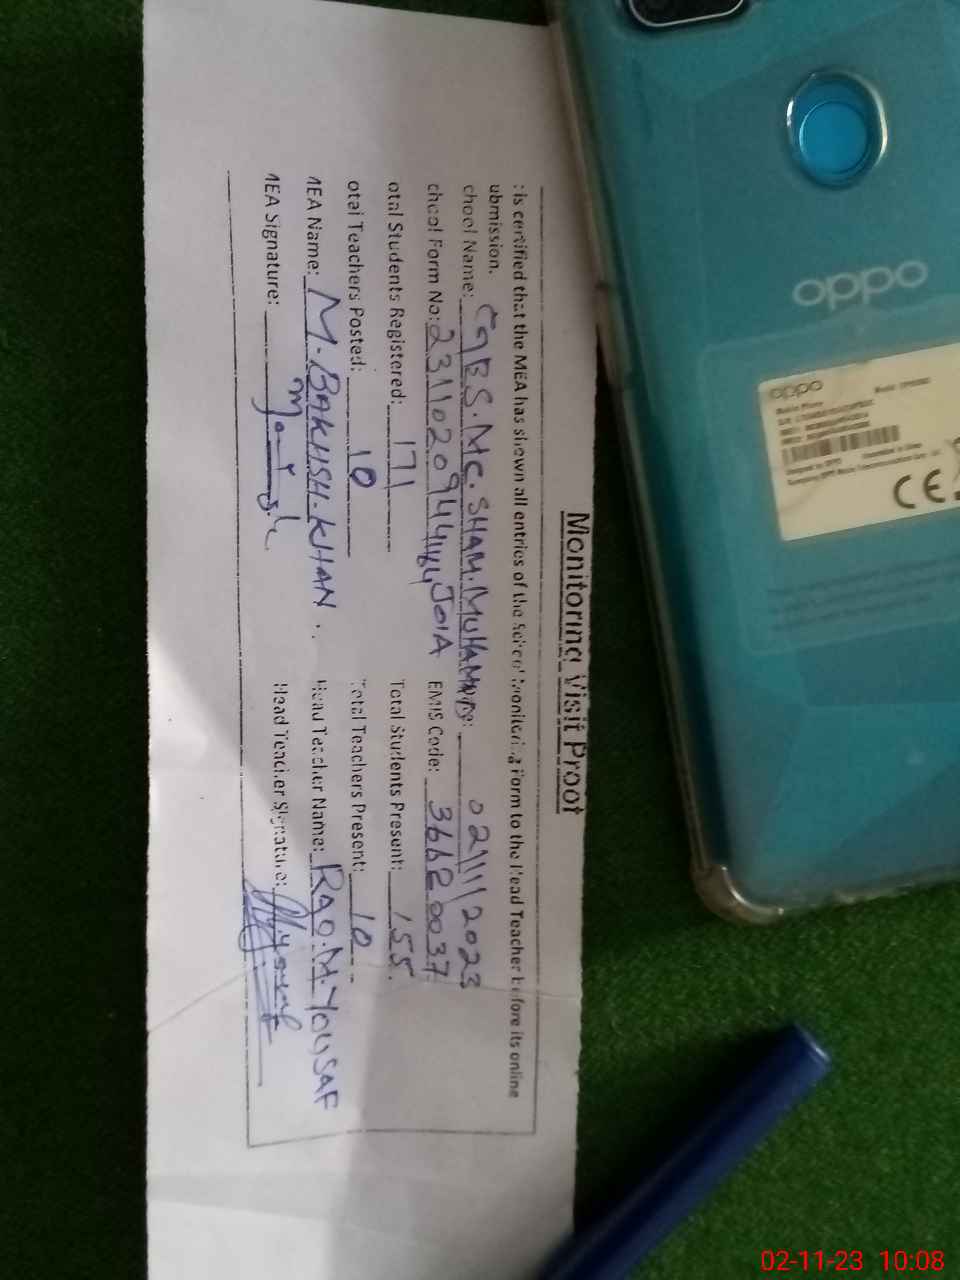 Monitoring Visit Proof
is certified that the MEA has shown all entries of the School Monitoring Form to the Head Teacher before its online
ubmission.
chool Name: GGES.MC.SHAM.MUHAMMAD JOIA : 02/11/2023
chool Form No: EMIS Code: 366E0037
otal Students Registered: 171 Total Students Present: 155
otal Teachers Posted: 10 Total Teachers Present: 10
MEA Name: M.BAKHSH.KHAN Head Teacher Name: RAO.M.YOUSAF
MEA Signature: Head Teacher Signature:
oppo
oppo
CE
02-11-23 10:08